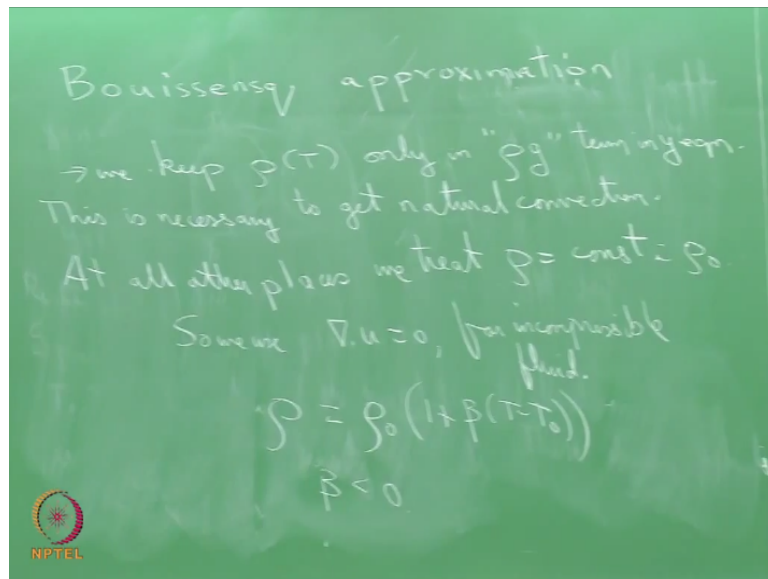 Bouissensq approximation
→ we keep ρ(T) only in "ρg" term in y eqn.
This is necessary to get natural convection.
At all other places we treat ρ = const = ρ₀
So we use ∇.u = 0, for incompressible
fluid.
ρ = ρ₀(1+β(T-T₀))
β < 0
NPTEL